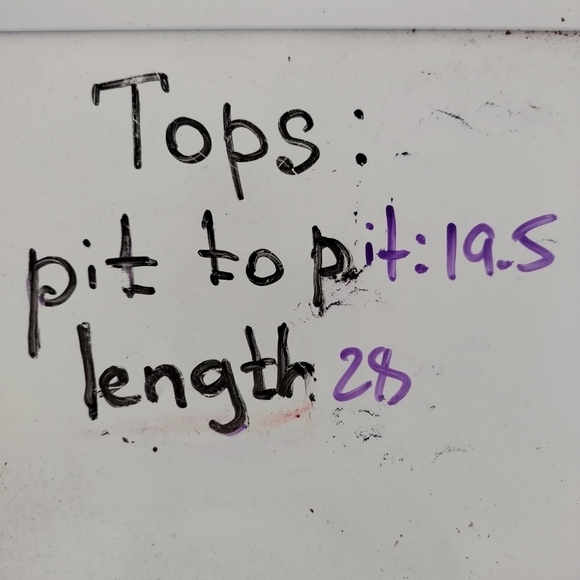 Tops:
pit to pit: 19.5
length 28